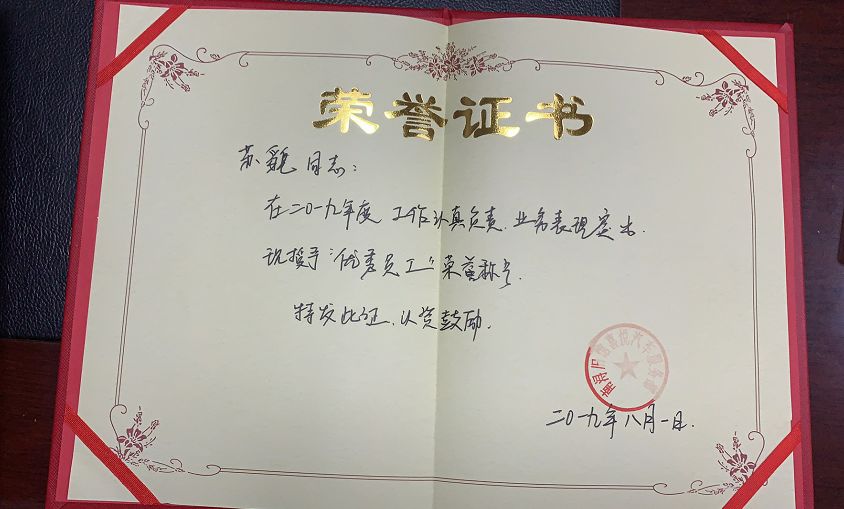 荣誉证书
苏 同志：
在二〇一九年度 工作认真负责、业务表现突出.
现授予“优秀员工”荣誉称号.
特发此证、以资鼓励.
汽车服务
二〇一九年八月一日.